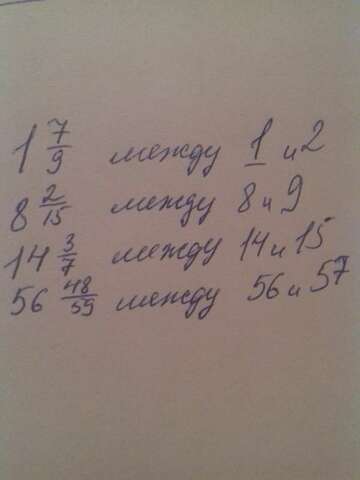 1 7/9 между 1 и 2
8 2/15 между 8 и 9
14 3/7 между 14 и 15
56 48/59 между 56 и 57